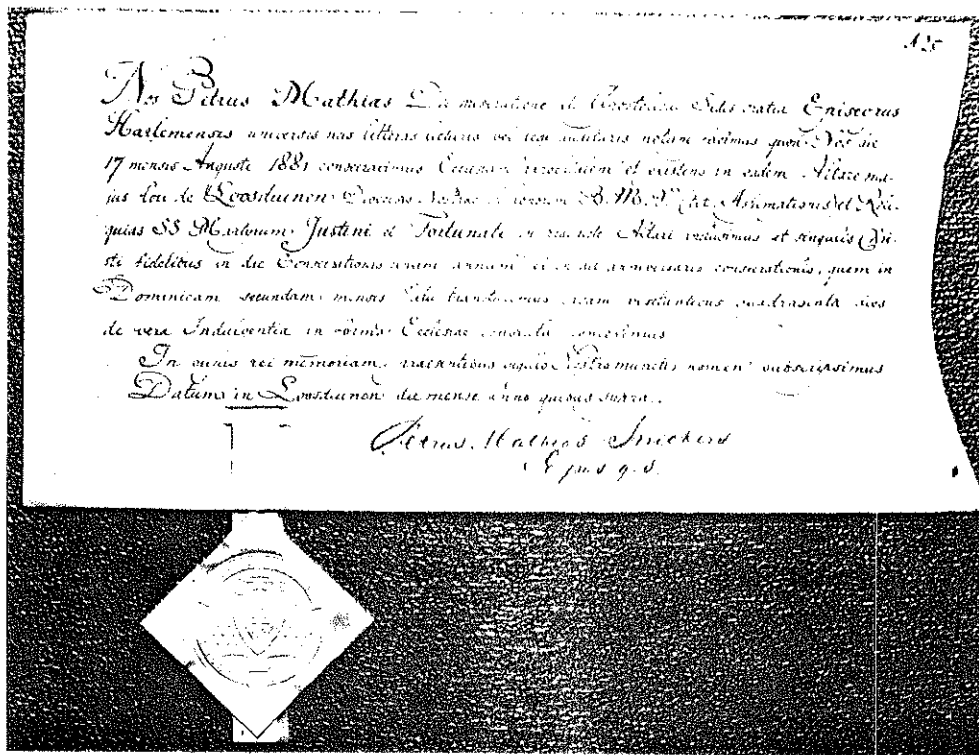 125
Nos Petrus Mathias Dei miseratione et Apostolicae Sedis gratia Episcopus
Harlemensis universis has litteras lecturis vel legi audituris notum
17 mensis Augusti 1881 consecravimus Ecclesiam et existens in eadem Altare ma-
jus loci de Loosduinen Diocesis Nostrae in honorem B. M. V. Assumationis et Reli-
quias SS Martorum Justini et Fortunati in Altari inclusimus et singulis Chri-
sti fidelibus in die Consecrationis unum annum et in die anniversario consecrationis, quem in
Dominicam secundam mensis Julii quadraginta dies
de vera Indulgentia in forma Ecclesiae consueta concessimus
In cujus rei memoriam, praesentibus sigillo Nostro munitis nomen subscripsimus
Datum in Loosduinen die mense anno quibus supra.
Petrus Mathias Snickers
Epus q.s.